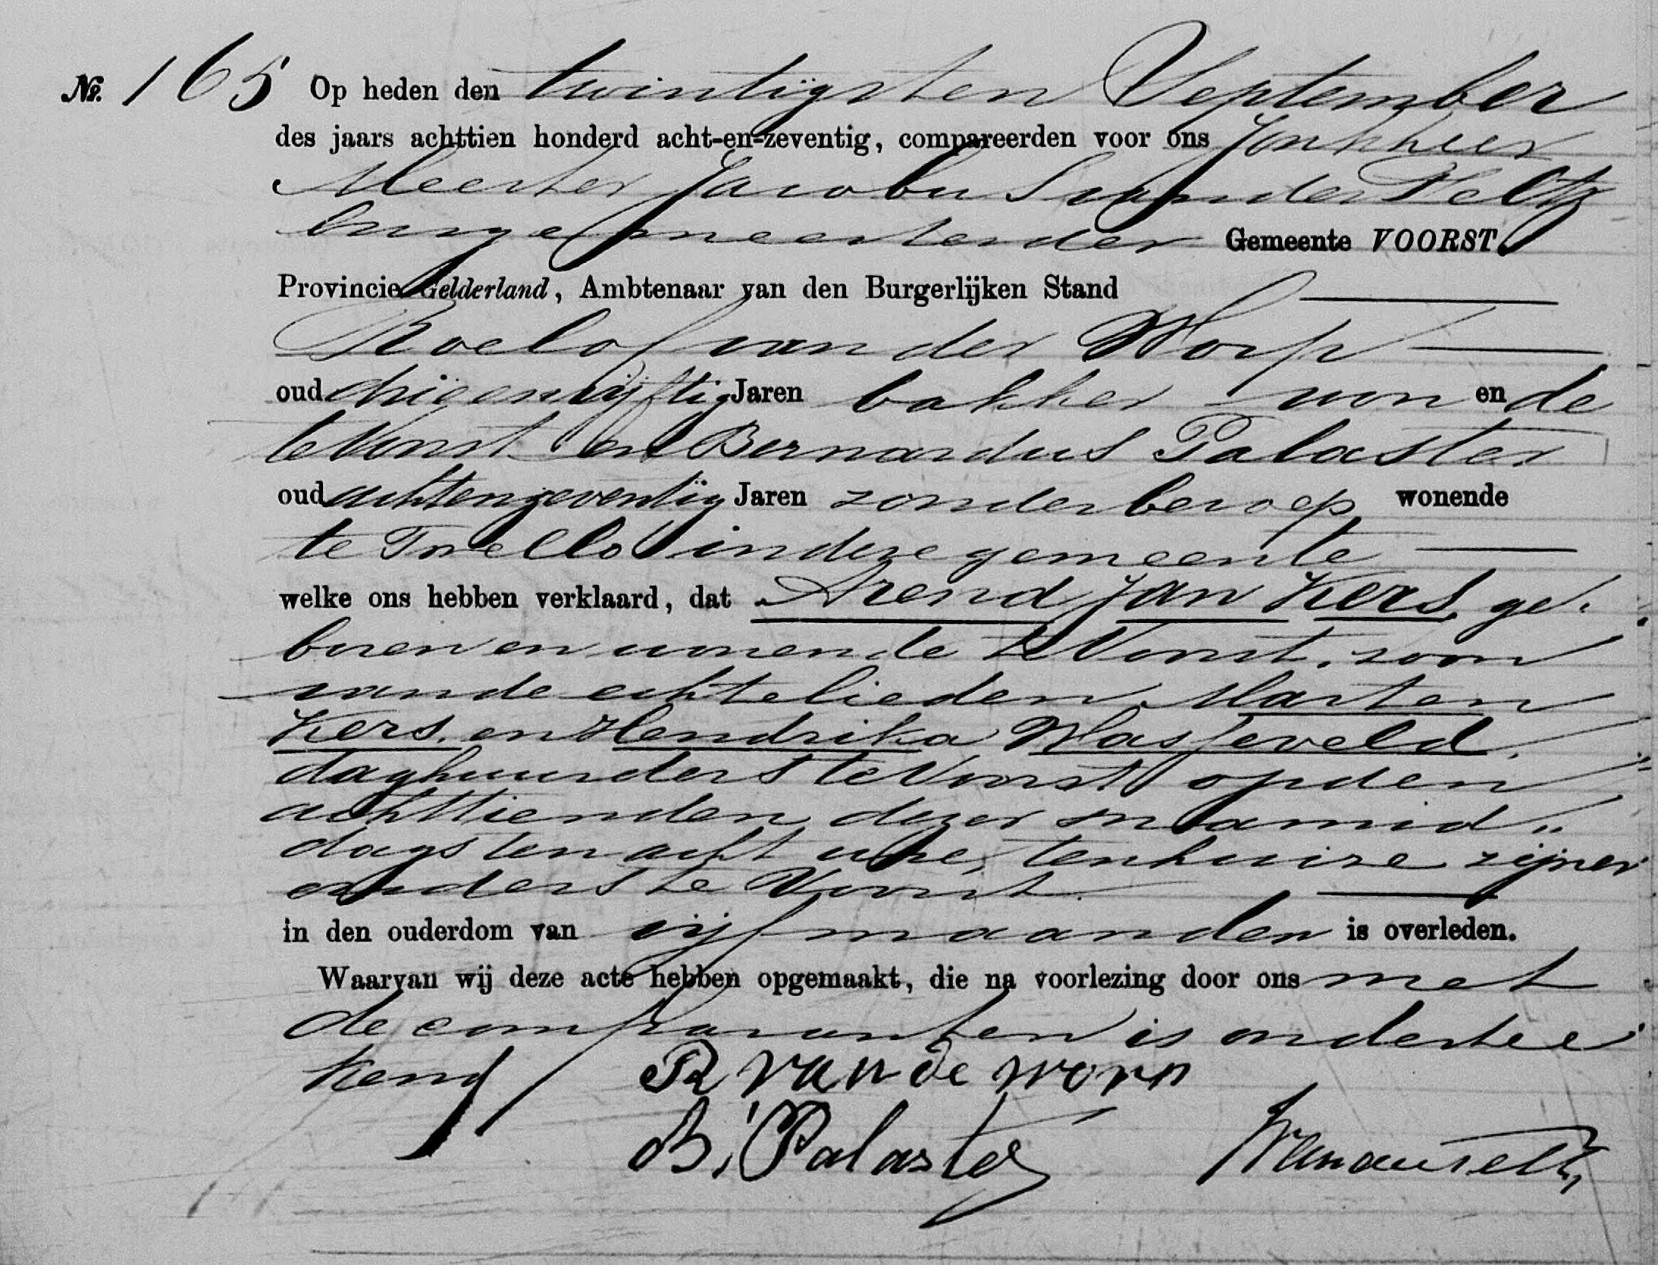 No. 165 Op heden den twintigsten September
des jaars achttien honderd acht-en-zeventig, compareerden voor ons Jonkheer
Meester Jacobus van der Feltz
burgemeester der Gemeente VOORST
Provincie Gelderland, Ambtenaar van den Burgerlijken Stand
Roelof van der Worp
oud drieenvijftig Jaren bakker wonende
te Voorst en Bernardus Palaster
oud achtenzeventig Jaren zonder beroep wonende
te Twello in deze gemeente
welke ons hebben verklaard, dat Arend Jan Kers, ge-
boren en wonende te Voorst, zoon
van de echtelieden Marten
Kers en Hendrika Wasseveld,
daghuurders te Voorst op den
achttienden dezer snamid„
dags ten acht ure, tenhuize zijner
ouders te Voorst
in den ouderdom van vijf maanden is overleden.
Waarvan wij deze acte hebben opgemaakt, die na voorlezing door ons met
de comparanten is ondertee
kend
R van de worp
B. Palaster